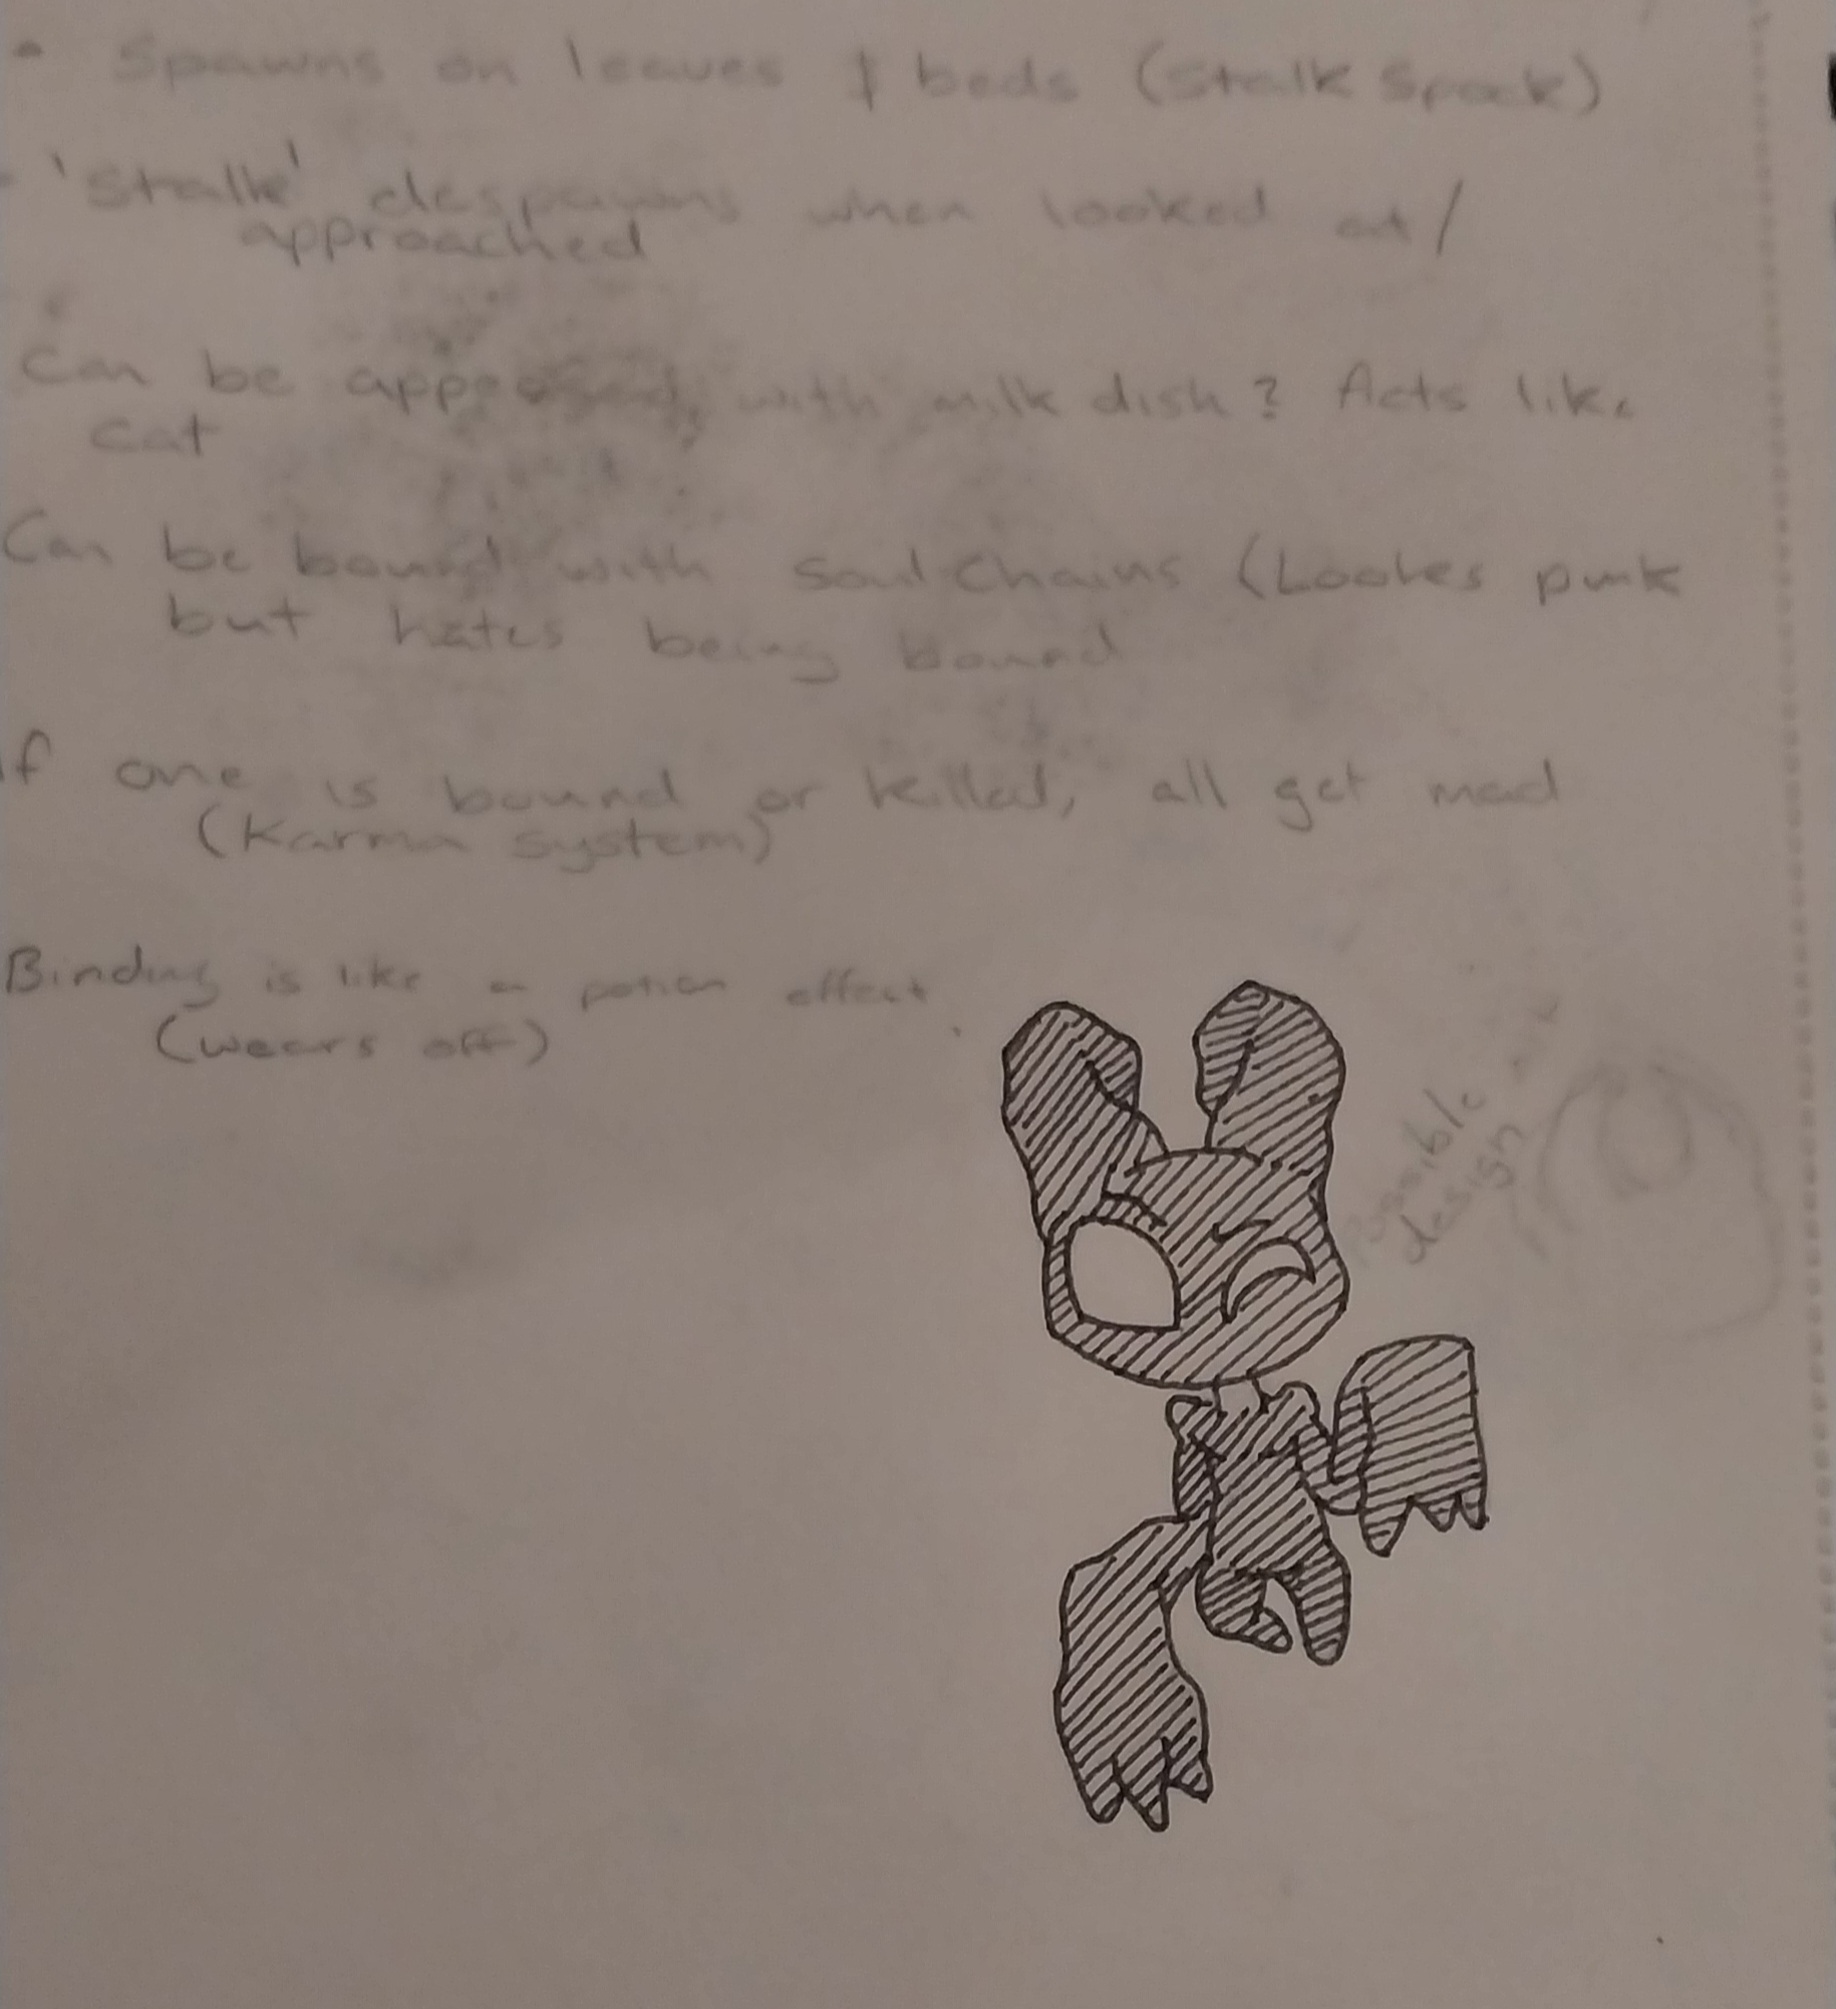 • Spawns on leaves & beds (Stalk Spook)
- 'Stalk' despawns when looked at/
approached
Can be appeased with milk dish? Acts like
cat
Can be bound with soul chains (Lookes punk
but hates being bound
If one is bound or killed, all get mad
(Karma system)
Binding is like a potion effect
(wears off)
Possible
design